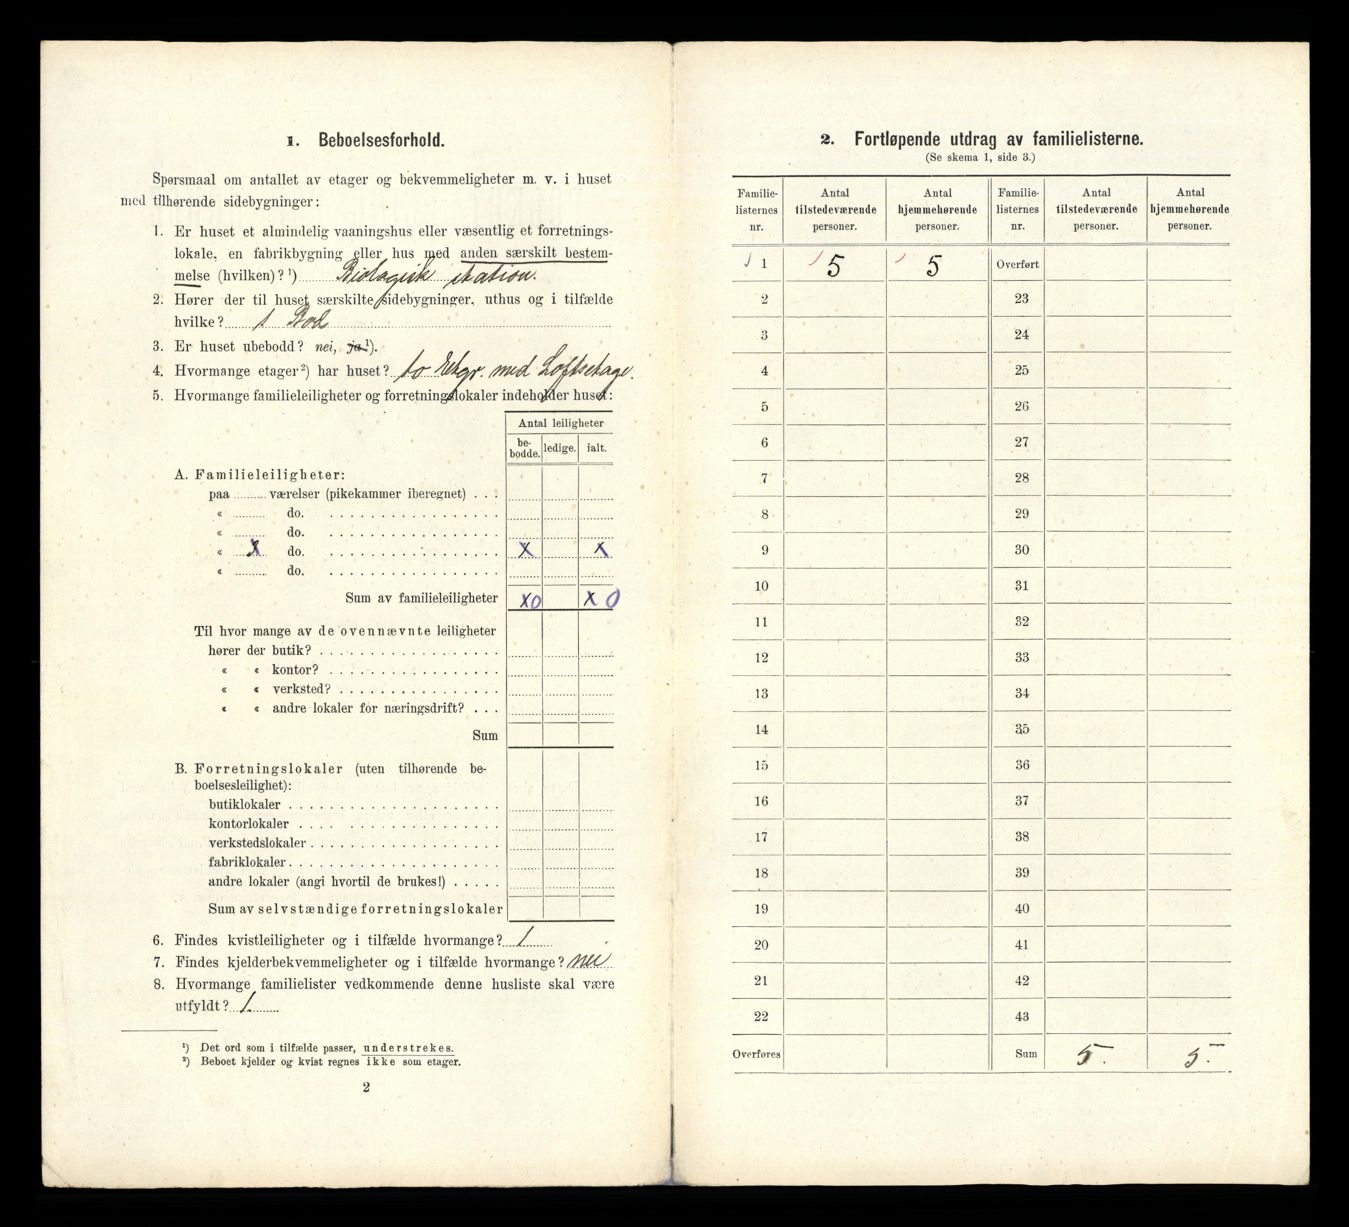 1. Beboelsesforhold.
Spørsmaal om antallet av etager og bekvemmeligheter m. v. i huset
med tilhørende sidebygninger:
1. Er huset et almindelig vaaningshus eller væsentlig et forretnings-
lokale, en fabrikbygning eller hus med anden særskilt bestem-
melse (hvilken)? ¹) Biologisk station.
2. Hører der til huset særskilte sidebygninger, uthus og i tilfælde
hvilke? 1 Bod
3. Er huset ubebodd? nei, ja ¹).
4. Hvormange etager ²) har huset? to Etgr. med Loftsetage.
5. Hvormange familieleiligheter og forretningslokaler indeholder huset:
Antal leiligheter
be-
bodde. ledige. ialt.
A. Familieleiligheter:
paa ........ værelser (pikekammer iberegnet) . . .
« ........ do. . . . . . . . . . . . . . . . . .
« ........ do. . . . . . . . . . . . . . . . . .
« X do. . . . . . . . . . . . . . . . . . X X
« ........ do. . . . . . . . . . . . . . . . . .
Sum av familieleiligheter X0 X 0
Til hvor mange av de ovennævnte leiligheter
hører der butik? . . . . . . . . . . . . . . . . . .
« « kontor? . . . . . . . . . . . . . . . . .
« « verksted? . . . . . . . . . . . . . . . .
« « andre lokaler for næringsdrift? . . .
Sum
B. Forretningslokaler (uten tilhørende be-
boelsesleilighet):
butiklokaler . . . . . . . . . . . . . . . . . . . . .
kontorlokaler . . . . . . . . . . . . . . . . . . .
verkstedslokaler . . . . . . . . . . . . . . . . . . .
fabriklokaler . . . . . . . . . . . . . . . . . . . . .
andre lokaler (angi hvortil de brukes!) . . . . .
Sum av selvstændige forretningslokaler
6. Findes kvistleiligheter og i tilfælde hvormange? 1
7. Findes kjelderbekvemmeligheter og i tilfælde hvormange? nei
8. Hvormange familielister vedkommende denne husliste skal være
utfyldt? 1.
¹) Det ord som i tilfælde passer, understrekes.
²) Beboet kjelder og kvist regnes ikke som etager.
2
2. Fortløpende utdrag av familielisterne.
(Se skema 1, side 3.)
Familie- Antal Antal Familie- Antal Antal
listernes tilstedeværende hjemmehørende listernes tilstedeværende hjemmehørende
nr. personer. personer. nr. personer. personer.
1 5 5 Overført
2 23
3 24
4 25
5 26
6 27
7 28
8 29
9 30
10 31
11 32
12 33
13 34
14 35
15 36
16 37
17 38
18 39
19 40
20 41
21 42
22 43
Overføres Sum 5. 5.